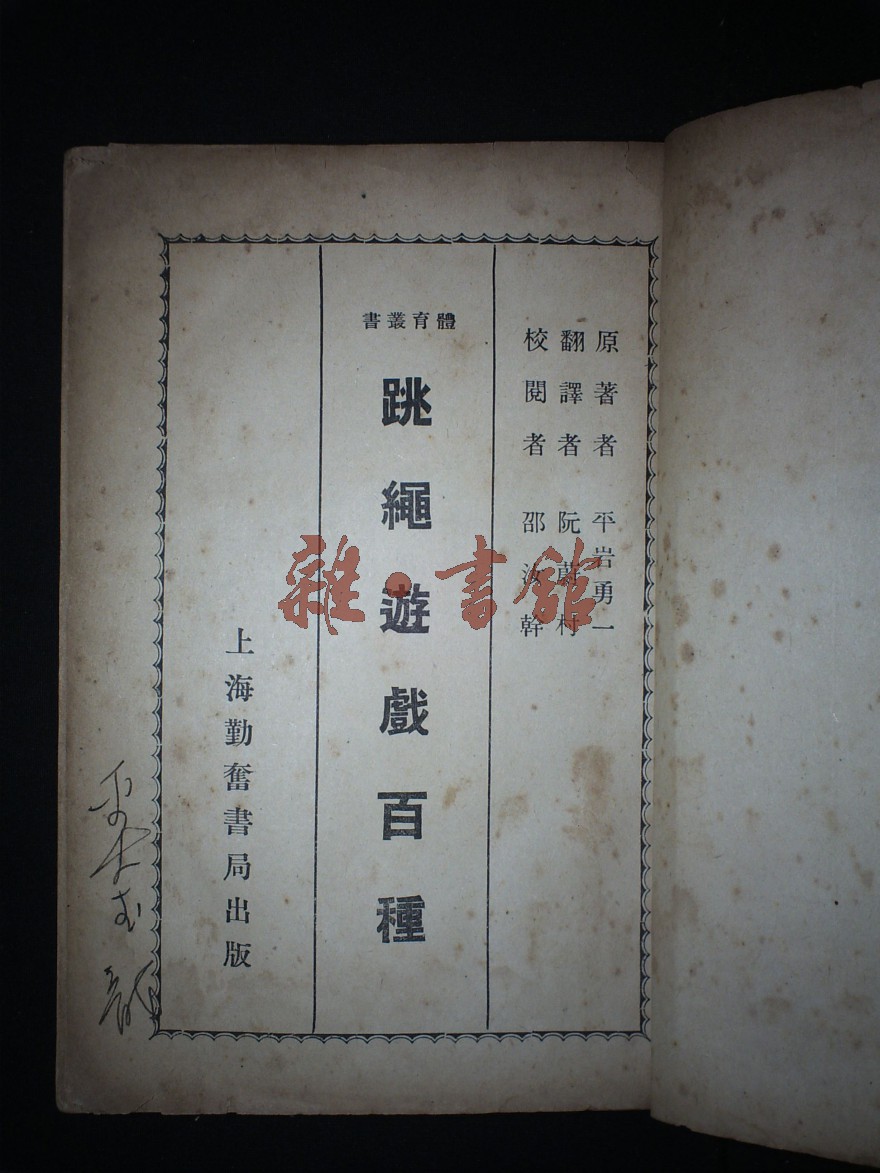 原著者 平岩勇一
翻譯者 阮蔚村
校閱者 邵汝幹
體育叢書
跳繩遊戲百種
上海勤奮書局出版
雜·書館